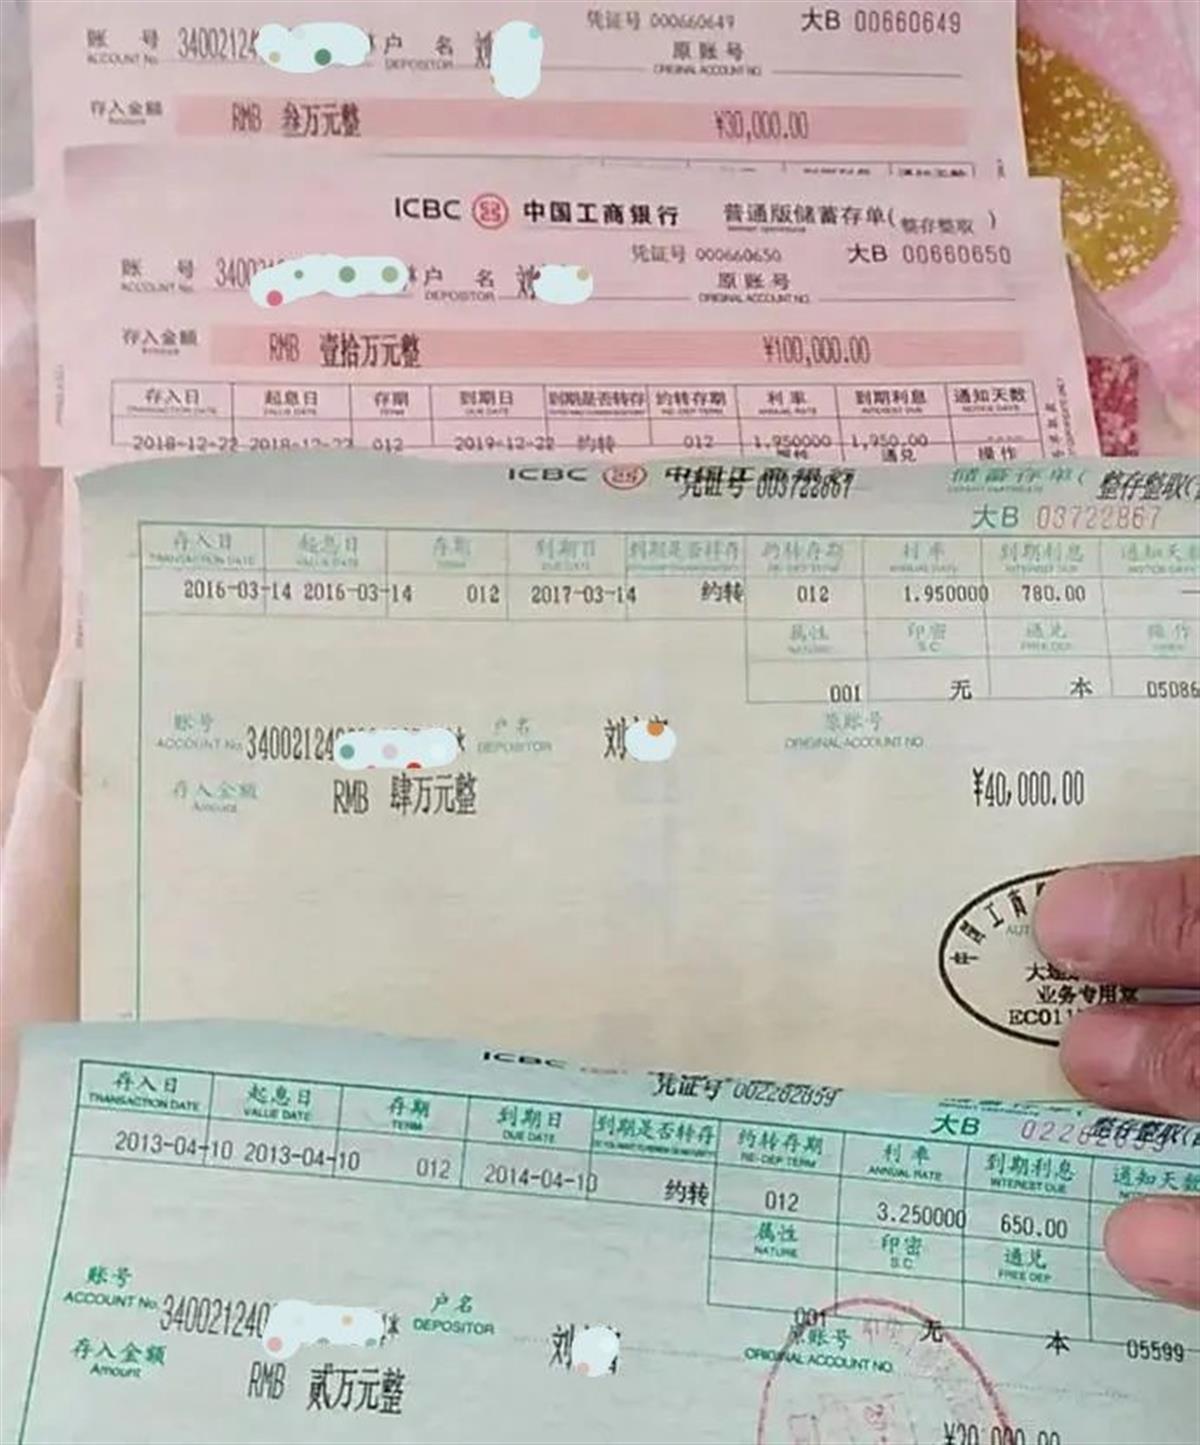 凭证号 000660649 大B 00660649
账 号 34002124 户 名 刘 原账号
ACCOUNT No. DEPOSITOR ORIGINAL ACCOUNT NO.
存入金额 RMB 叁万元整 ¥30,000.00
Amount
ICBC 中国工商银行 普通版储蓄存单(整存整取 )
凭证号 000660650 大B 00660650
账 号 3400 户 名 刘 原账号
ACCOUNT No. DEPOSITOR ORIGINAL ACCOUNT NO.
存入金额 RMB 壹拾万元整 ¥100,000.00
Amount
存入日 起息日 存期 到期日 到期是否转存 约转存期 利率 到期利息 通知天数
TRANSACTION DATE VALUE DATE TERM DUE DATE RE-DEP TERM ANNUAL RATE INTEREST DUE NOTICE DAYS
2018-12-22 2018-12-22 012 2019-12-22 约转 012 1.950000 1,950.00
通兑 操作
ICBC 中国工商银行 储蓄存单( 整存整取(
凭证号 003722867
大B 03722867
存入日 起息日 存期 到期日 到期是否转存 约转存期 利率 到期利息 通知天
TRANSACTION DATE VALUE DATE TERM DUE DATE RE-DEP TERM ANNUAL RATE INTEREST DUE
2016-03-14 2016-03-14 012 2017-03-14 约转 012 1.950000 780.00
属性 印密 通兑 操作
NATURE S.C FREE DEP
001 无 本 05086
账号 34002124 户名 刘 原账号
ACCOUNT No. DEPOSITOR ORIGINAL ACCOUNT NO
存入金额 RMB 肆万元整 ¥40,000.00
Amount
中国工商
业务专用章
EC011
ICBC
凭证号 002282859
大B 整存整取(
存入日 起息日 存期 到期日 到期是否转存 约转存期 利率 到期利息 通知天数
TRANSACTION DATE VALUE DATE TERM DUE DATE RE-DEP TERM ANNUAL RATE INTEREST DUE
2013-04-10 2013-04-10 012 2014-04-10 约转 012 3.250000 650.00
属性 印密 通兑
NATURE S.C FREE DEP
001 无 本 05599
账号 340021240 户名 刘 原账号
ACCOUNT No. DEPOSITOR ORIGINAL ACCOUNT NO.
存入金额 RMB 贰万元整 ¥20,000.00
Amount